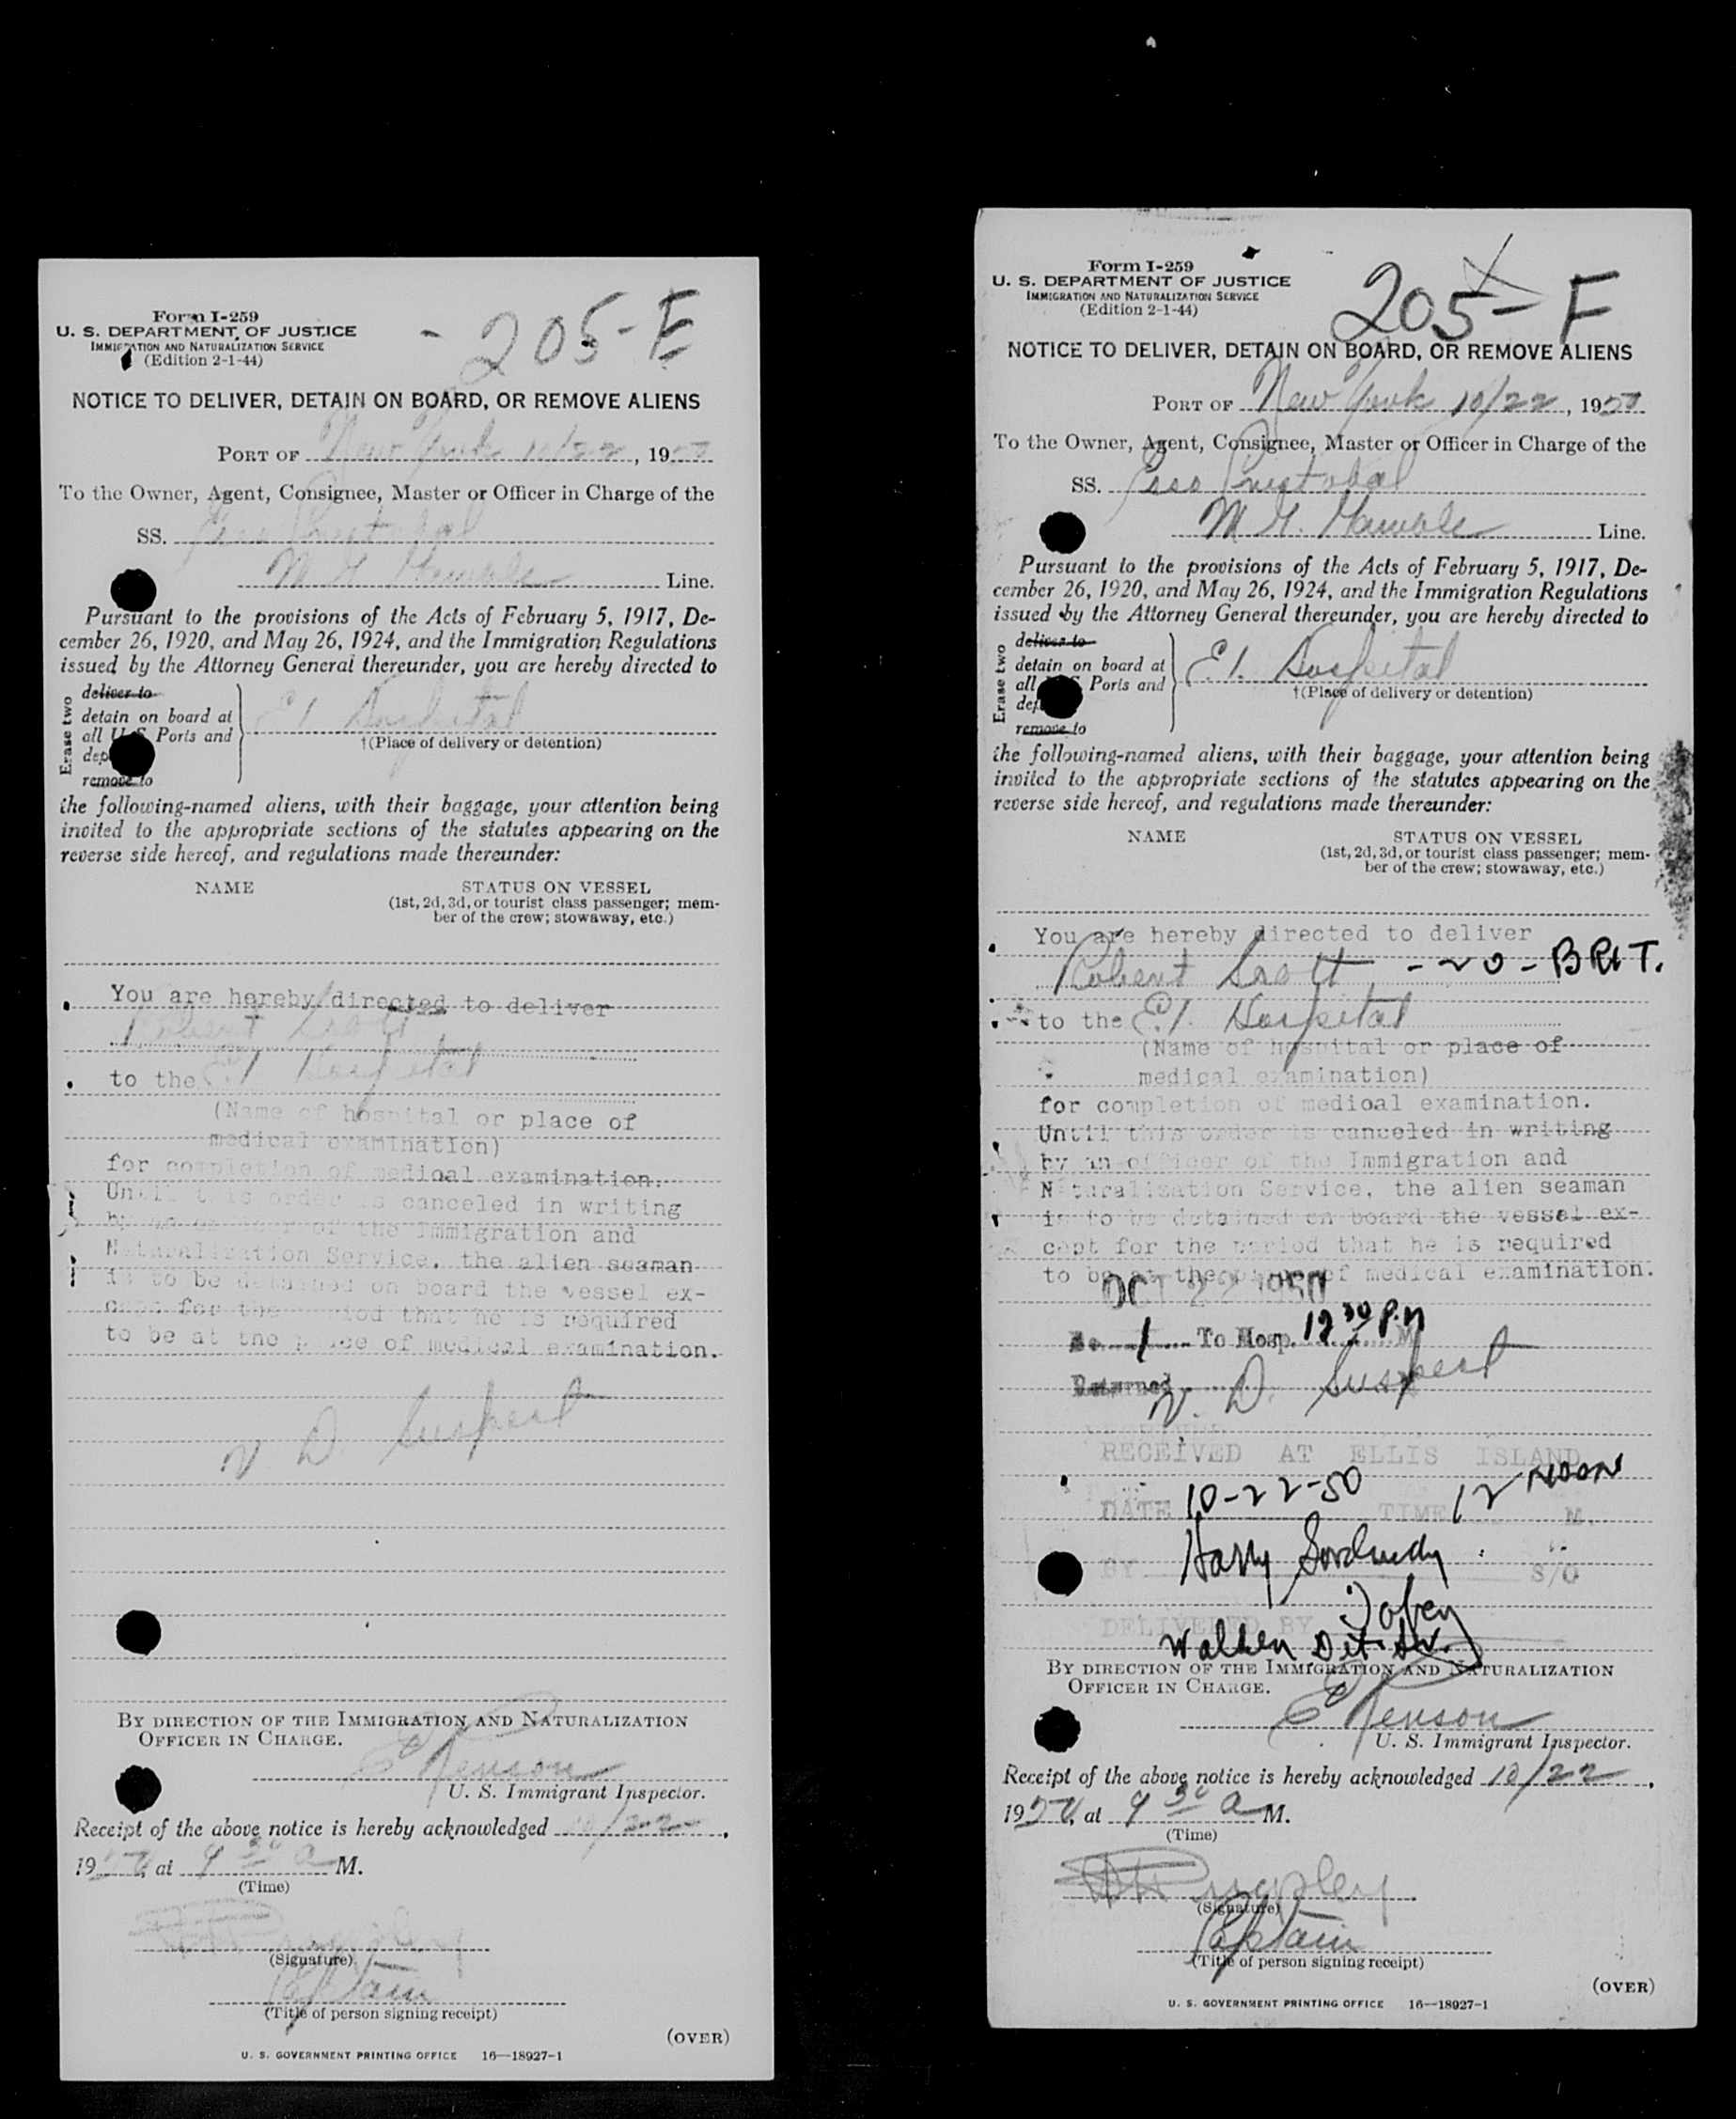 Form I-259
U. S. DEPARTMENT OF JUSTICE
IMMIGRATION AND NATURALIZATION SERVICE
(Edition 2-1-44)
- 205-E
NOTICE TO DELIVER, DETAIN ON BOARD, OR REMOVE ALIENS
PORT OF New York 10/22, 1950
To the Owner, Agent, Consignee, Master or Officer in Charge of the
SS. Esso
Line.
Pursuant to the provisions of the Acts of February 5, 1917, De-
cember 26, 1920, and May 26, 1924, and the Immigration Regulations
issued by the Attorney General thereunder, you are hereby directed to
Erase two
deliver to
detain on board at
all U S Ports and
E.I. Hospital
†(Place of delivery or detention)
remove to
the following-named aliens, with their baggage, your attention being
invited to the appropriate sections of the statutes appearing on the
reverse side hereof, and regulations made thereunder:
NAME
STATUS ON VESSEL
(1st, 2d, 3d, or tourist class passenger; mem-
ber of the crew; stowaway, etc.)
You are hereby directed to deliver
Robert Scott
to the E.I. Hospital
(Name of hospital or place of
medical examination)
for completion of medical examination.
Until this order is canceled in writing
by an officer of the Immigration and
Naturalization Service, the alien seaman
is to be detained on board the vessel ex-
cept for the period that he is required
to be at the place of medical examination.
V. D. Suspect
BY DIRECTION OF THE IMMIGRATION AND NATURALIZATION
OFFICER IN CHARGE.
E Renson
U. S. Immigrant Inspector.
Receipt of the above notice is hereby acknowledged 10/22,
1950, at 9 30 a M.
(Time)
(Signature)
Captain
(Title of person signing receipt)
(OVER)
U. S. GOVERNMENT PRINTING OFFICE 16—18927-1
Form I-259
U. S. DEPARTMENT OF JUSTICE
IMMIGRATION AND NATURALIZATION SERVICE
(Edition 2-1-44)
205-F
NOTICE TO DELIVER, DETAIN ON BOARD, OR REMOVE ALIENS
PORT OF New York 10/22, 1950
To the Owner, Agent, Consignee, Master or Officer in Charge of the
SS. Esso
Line.
Pursuant to the provisions of the Acts of February 5, 1917, De-
cember 26, 1920, and May 26, 1924, and the Immigration Regulations
issued by the Attorney General thereunder, you are hereby directed to
Erase two
deliver to
detain on board at
all Ports and
E.I. Hospital
†(Place of delivery or detention)
remove to
the following-named aliens, with their baggage, your attention being
invited to the appropriate sections of the statutes appearing on the
reverse side hereof, and regulations made thereunder:
NAME
STATUS ON VESSEL
(1st, 2d, 3d, or tourist class passenger; mem-
ber of the crew; stowaway, etc.)
You are hereby directed to deliver
Robert Scott - 20 - BRIT.
to the E.I. Hospital
(Name of hospital or place of
medical examination)
for completion of medical examination.
Until this order is canceled in writing
by an officer of the Immigration and
Naturalization Service, the alien seaman
is to be detained on board the vessel ex-
cept for the period that he is required
to be at the place of medical examination.
OCT 22 1950
1 To Hosp. 12 30 P.M
Returned
V. D. Suspect
RECEIVED AT ELLIS ISLAND
DATE 10-22-50 TIME 12 NOON M.
BY Harry S/O
DELIVERED BY
BY DIRECTION OF THE IMMIGRATION AND NATURALIZATION
OFFICER IN CHARGE.
E Renson
U. S. Immigrant Inspector.
Receipt of the above notice is hereby acknowledged 10/22,
1950, at 9 30 a M.
(Time)
(Signature)
Captain
(Title of person signing receipt)
(OVER)
U. S. GOVERNMENT PRINTING OFFICE 16—18927-1